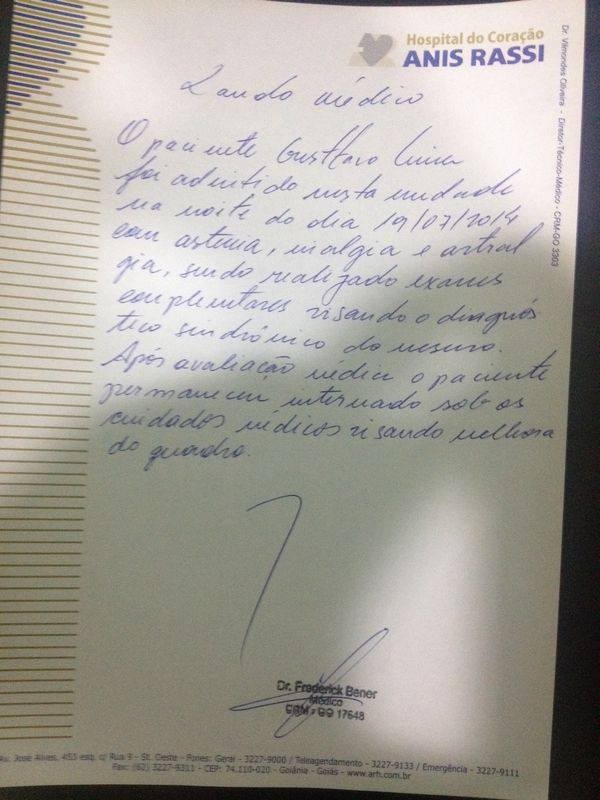 Hospital do Coração
ANIS RASSI
Dr. Vilmondes Oliveira - Diretor-Técnico-Médico - CRM-GO 3303
Laudo médico
O paciente Gusttavo Lima
foi admitido nesta unidade
na noite do dia 19/07/2014
com astenia, mialgia e artral
gia, sendo realizado exames
complentares visando o diagnós
tico sindrômico do mesmo.
Após avaliação médica o paciente
permaneceu internado sob os
cuidados médicos visando melhora
do quadro.
Dr. Frederick Bener
Médico
CRM - GO 17648
Av. José Alves, 453 esq. c/ Rua 9 - St. Oeste - Fones: Geral - 3227-9000 / Teleagendamento - 3227-9133 / Emergência - 3227-9111
Fax: (62) 3227-9311 - CEP: 74.110-020 - Goiânia - Goiás - www.arh.com.br